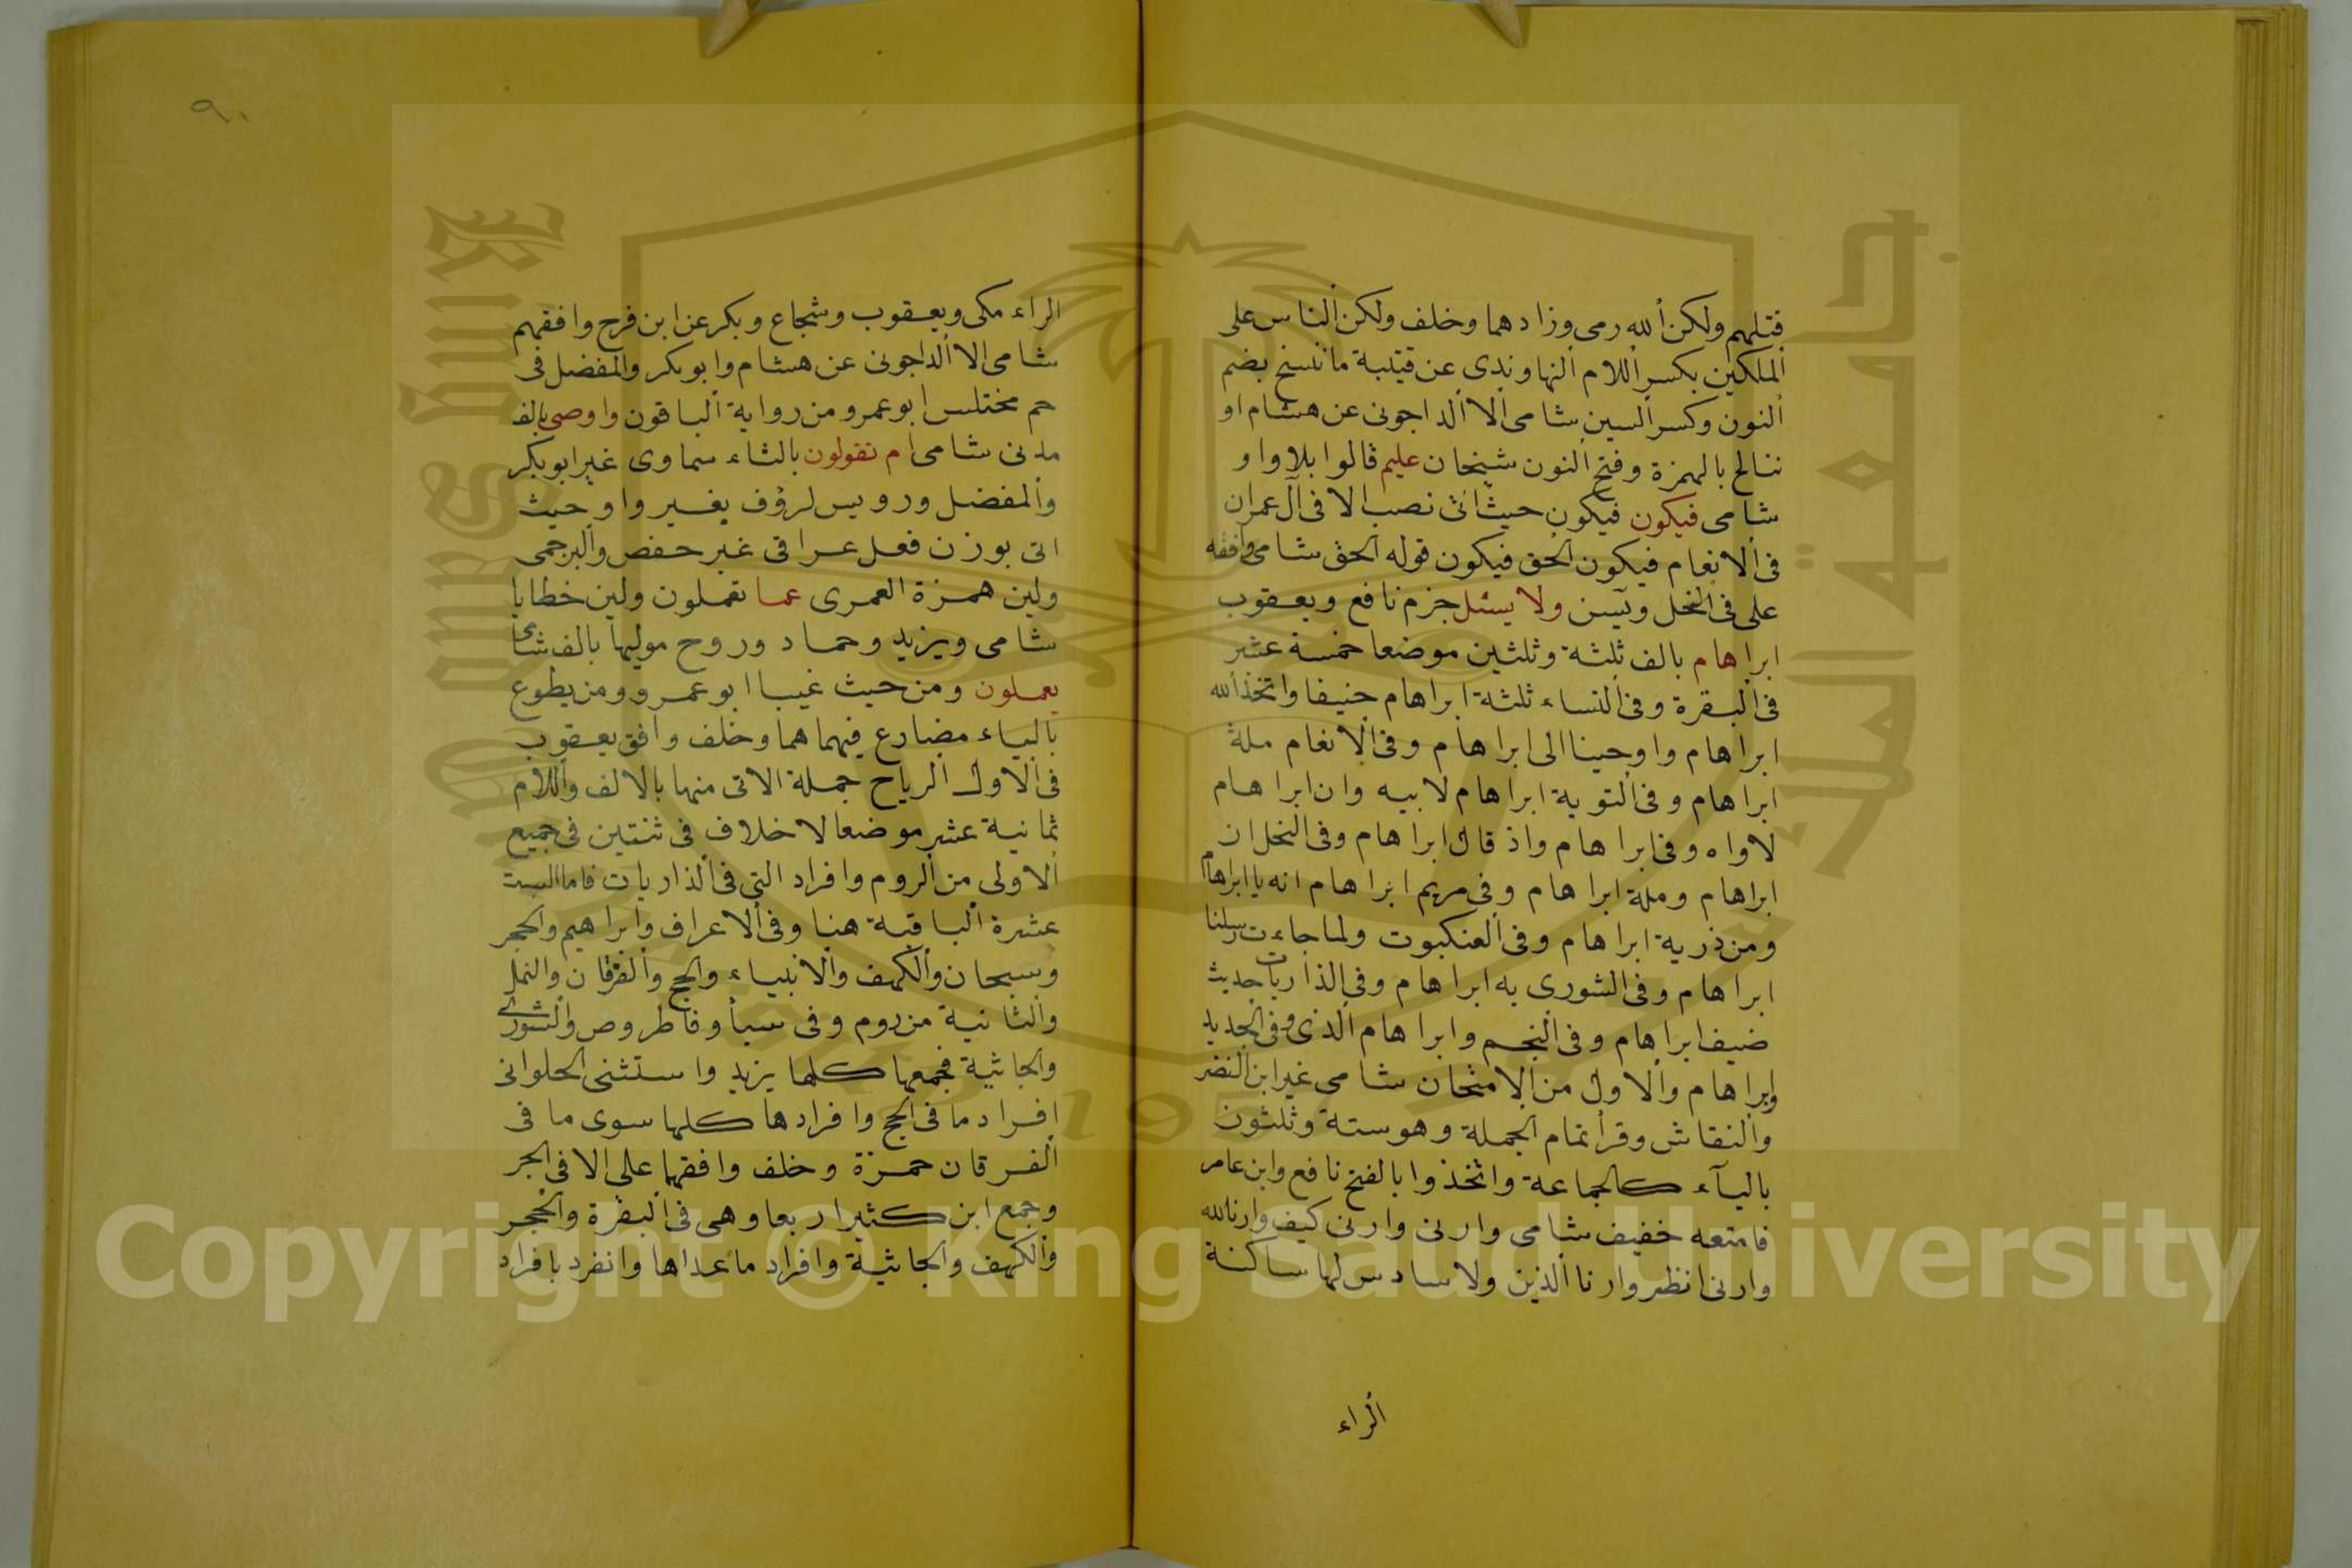 قتلهم ولكن الله رمى وزادهما وخلف ولكن الناس على
الملكين بكسر اللام النهاوندى عن قتيبة ما ننسخ بضم
النون وكسر السين شامى الا الداجونى عن هشام او
ننالح بالهمزة وفتح النون شيخان عليم قالوا بلا واو
شامى فيكون فيكون حيث اتى نصب الا فى آل عمران
فى الانعام فيكون الحق فيكون قوله الحق شامى وافقه
على فى النحل ويسن ولا يسئل جزم نافع ويعقوب
ابراهام بالف ثلثة وثلثين موضعا خمسة عشر
فى البقرة وفى النساء ثلثة ابراهام حنيفا واتخذ الله
ابراهام واوحينا الى ابراهام وفى الانعام ملة
ابراهام وفى التوبة ابراهام لابيه وان ابراهام
لاواه وفى ابراهام واذ قال ابراهام وفى النحل ان
ابراهام وملة ابراهام وفى مريم ابراهام انه يا ابراهام
ومن ذرية ابراهام وفى العنكبوت ولما جاءت رسلنا
ابراهام وفى الشورى به ابراهام وفى الذاريات حديث
ضيف ابراهام وفى النجم وابراهام الذى وفى الحديد
وابراهام والاول من الامتحان شامى غير ابن النضر
والنقاش وقرأ تمام الجملة وهو ستة وثلثون
بالياء كالجماعة واتخذوا بالفتح نافع وابن عامر
فامتعه خفيف شامى وارنى وارنى كيف وارنا الله
وارنى انظر وارنا الذين ولا سادس لها ساكنة
الراء
٩٠
الراء مكى ويعقوب وشجاع وبكر عن ابن فرح وافقهم
شامى الا الداجونى عن هشام وابو بكر والمفضل فى
حم مختلس ابو عمرو من رواية الباقون واوصى بالف
مدنى شامى ام تقولون بالتاء سماوى غير ابو بكر
والمفضل ورويس لرؤف بغير واو حيث
اتى بوزن فعل عراقى غير حفص والبرجمى
ولين همزة العمرى عما تعملون ولين خطايا
شامى ويزيد وحماد وروح موليها بالف شامى
يعملون ومن حيث غيبا ابو عمرو ومن يطوع
بالياء مضارع فيهما هما وخلف وافق يعقوب
فى الاول الرياح جملة الاتى منها بالالف واللام
ثمانية عشر موضعا لا خلاف فى ثنتين فى جميع
الاولى من الروم وافراد التى فى الذاريات فاما الست
عشرة الباقية هنا وفى الاعراف وابراهيم والحجر
وسبحان والكهف والانبياء والحج والفرقان والنمل
والثانية من روم وفى سبأ وفاطر وص والشورى
والجاثية فجمعها كلها يزيد واستثنى الحلوانى
افراد ما فى الحج وافرادها كلها سوى ما فى
الفرقان حمزة وخلف وافقهما على الا فى الحجر
وجمع ابن كثير اربعا وهى فى البقرة والحجر
والكهف والجاثية وافراد ما عداها وانفرد بافراد
جامعة الملك سعود
King Saud University
1957
Copyright © King Saud University